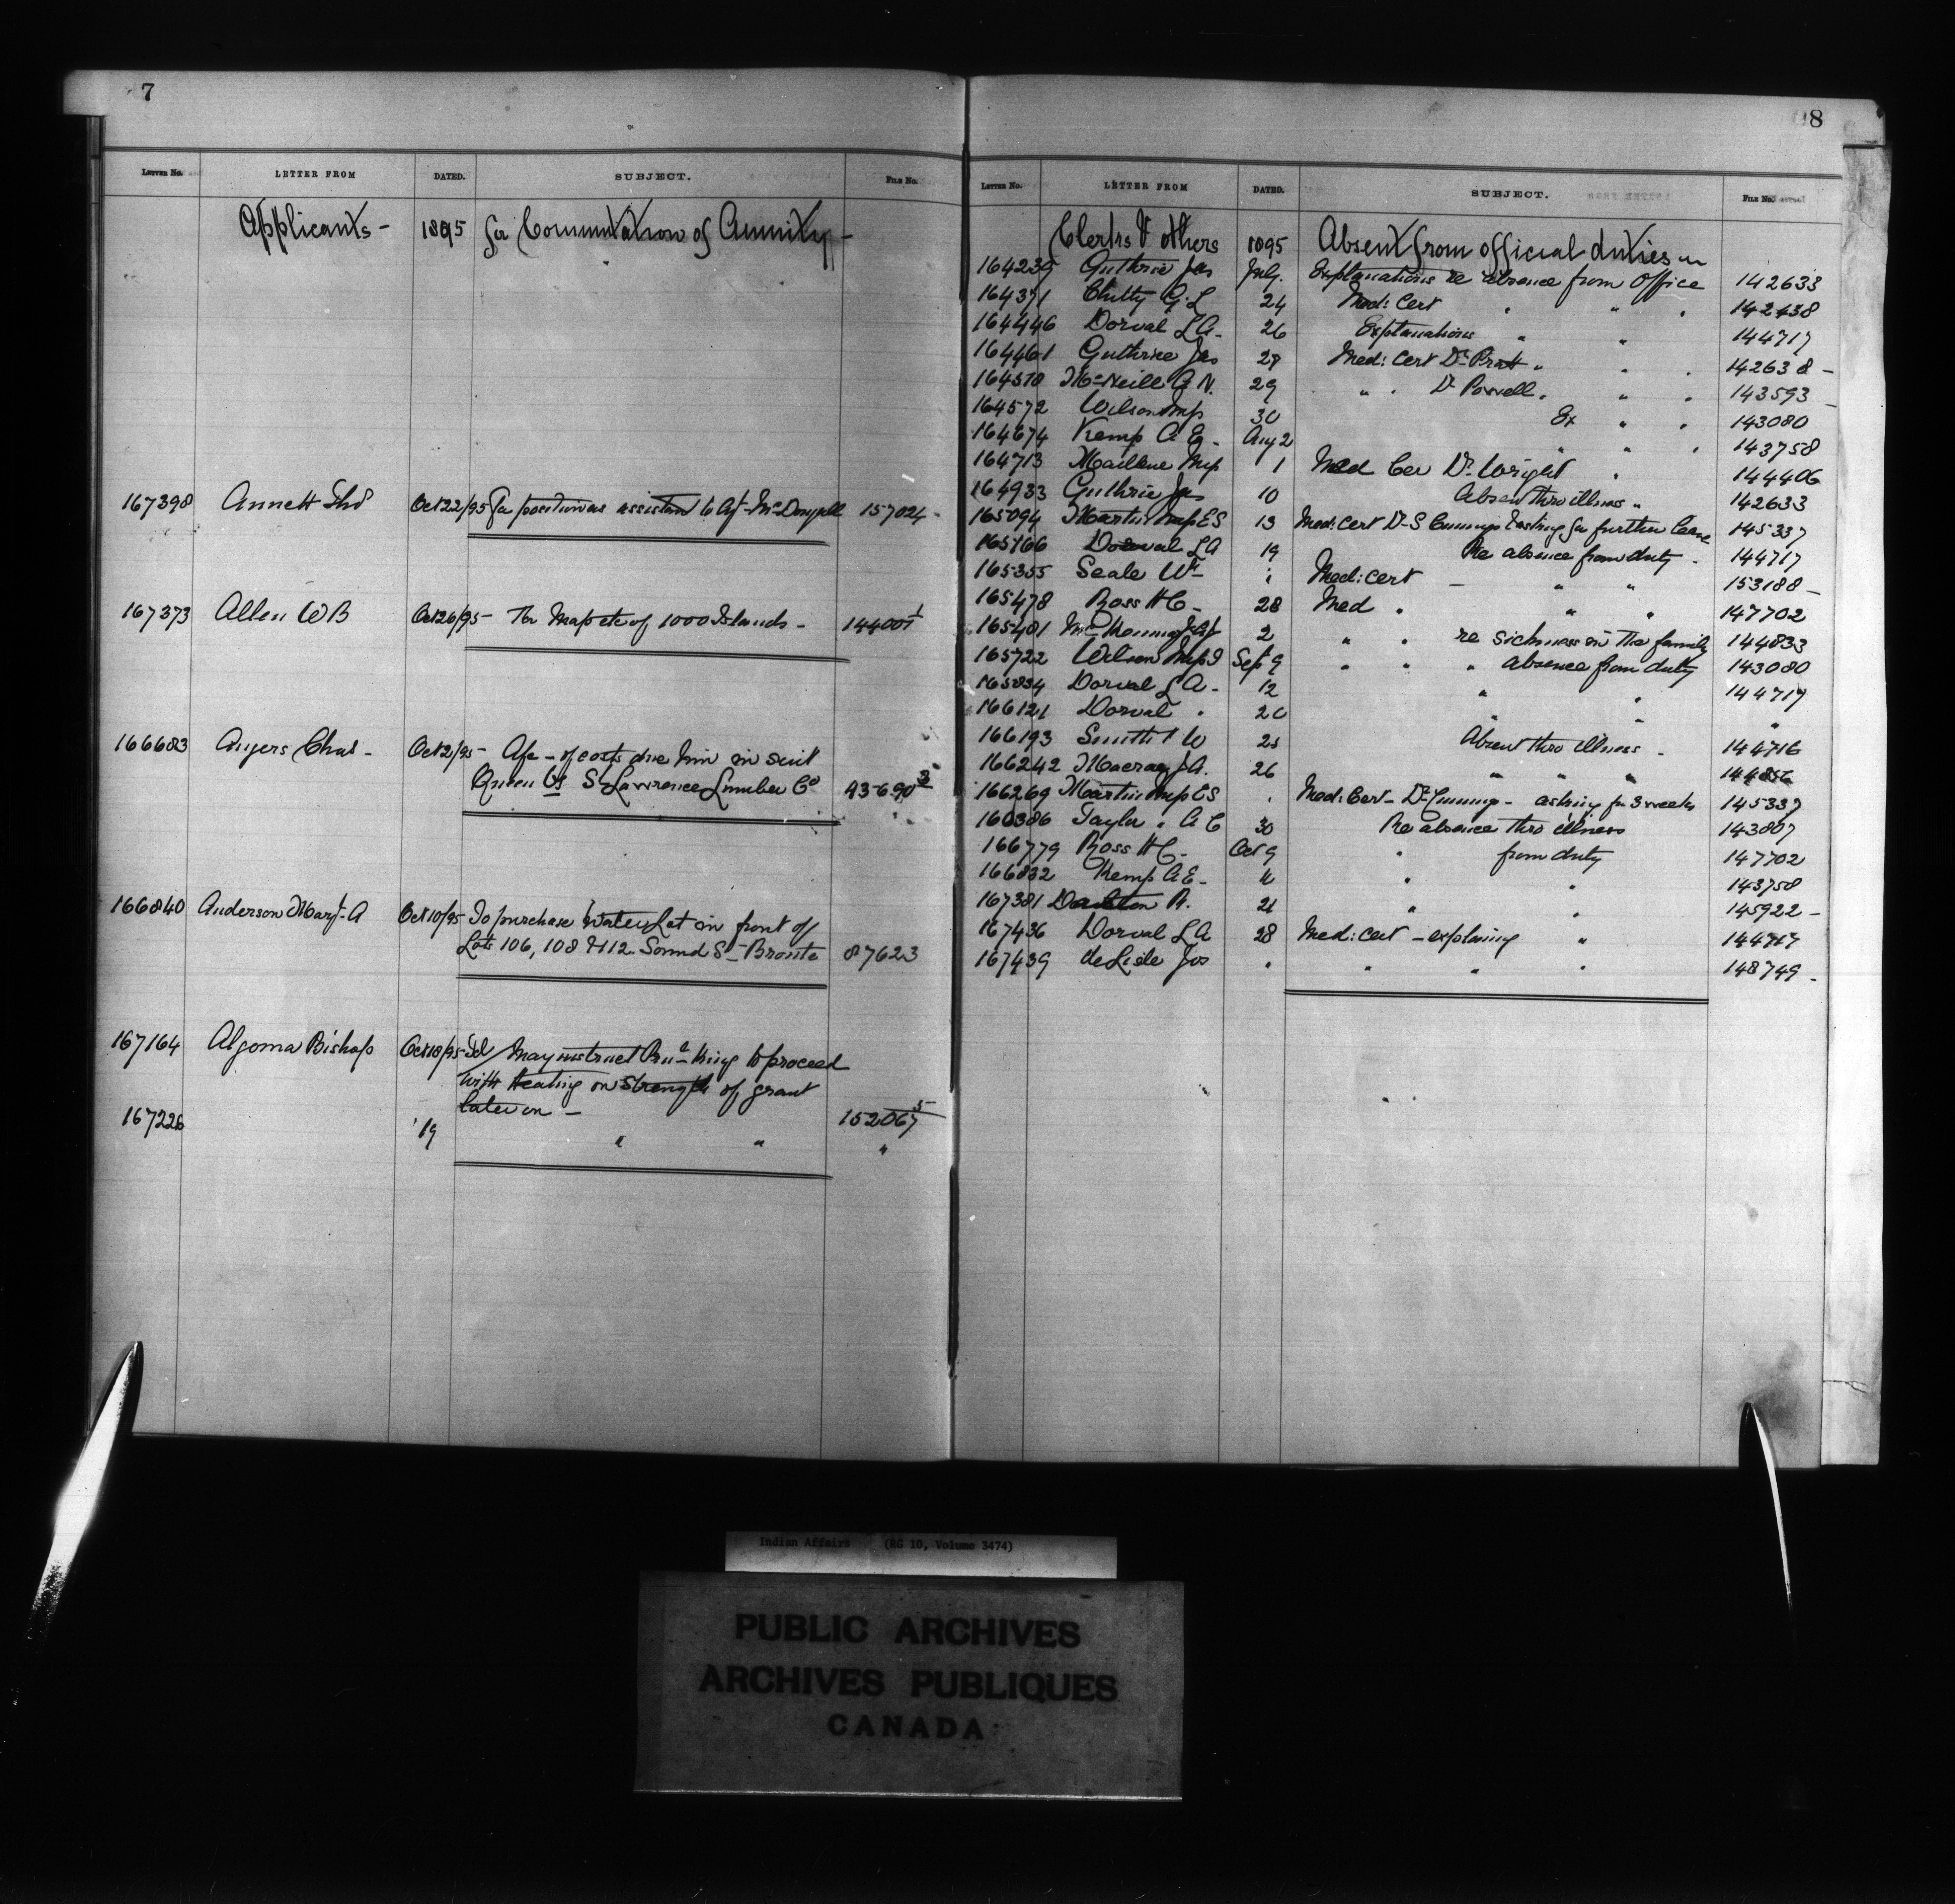 7
LETTER No. LETTER FROM DATED. SUBJECT. FILE No.
Applicants - 1895 for Commutation of Annuity -
167398 Annett Thos Oct 22/95 for position as assistant to Agt McDougall 157024 -
167373 Allen W B Oct 26/95 - For Map etc of 1000 Islands - 144001
166683 Angers Chas - Oct 2/95 - of costs due him in suit
Queen vs St Lawrence Lumber Co 43690
166840 Anderson Mary A Oct 10/95 To purchase Water Lot in front of
Lots 106, 108 & 112 Sound St - Bronte 87623
167164 Algoma Bishop Oct 18/95 Tel May instruct King to proceed
with heating on strength of grant
later on - 152067
167226 19 " " "
8
LETTER No. LETTER FROM DATED. SUBJECT. FILE No.
Clerks & others 1895 Absent from official duties
164239 Guthrie Jas July. Explanations re absence from Office 142633
164371 Chitty G. L 24 Med: Cert " " " 142438
164446 Dorval L A - 26 Explanations " " 144717
164461 Guthrie Jas 27 Med: Cert Dr Pratt " " " 142638 -
164570 McNeill A N. 29 " " Dr Powell " " " 143593 -
164572 Wilson Miss 30 Ex " " 143080
164674 Kemp A E - Aug 2 " " " 143758
164713 Miss 1 Med Cer Dr Wright " 144406
164933 Guthrie Jas 10 Absen thro illness " 142633
165094 Martin Miss E S 13 Med: Cert Dr S Cummings & asking for further leave 145337
165166 Dorval L A 19 Re absence from duty - 144717
165355 Seale Wm - " Med: cert - " " 153188 -
165478 Ross H C - 28 Med " " " 147702
165401 2 " " re sickness in the family 144833
165722 Wilson Miss I Sept 9 " " " Absence from duty 143080
165834 Dorval L A - 12 " " 144717
166121 Dorval " 20 " " "
166193 Smith W 25 Absen thro illness - 144716
166242 Macrae J. A. 26 " " " 144856
166269 Martin Miss E S " Med: Cert - Dr Cummings - asking for 3 weeks 145337
166386 Taylor " A C 30 Re absence thro illness 143807
166779 Ross H C - Oct 9 " from duty 147702
166832 Kemp A E - 11 " " 143758
167381 R. 21 " " 145922 -
167436 Dorval L A 28 Med: cert - explaining " 144717
167439 deLisle Jos " " " " 148749 -
Indian Affairs (RG 10, Volume 3474)
PUBLIC ARCHIVES
ARCHIVES PUBLIQUES
CANADA